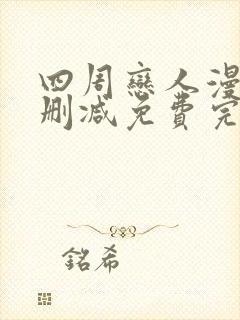 四周戀人漫
刪減免費完
銘希